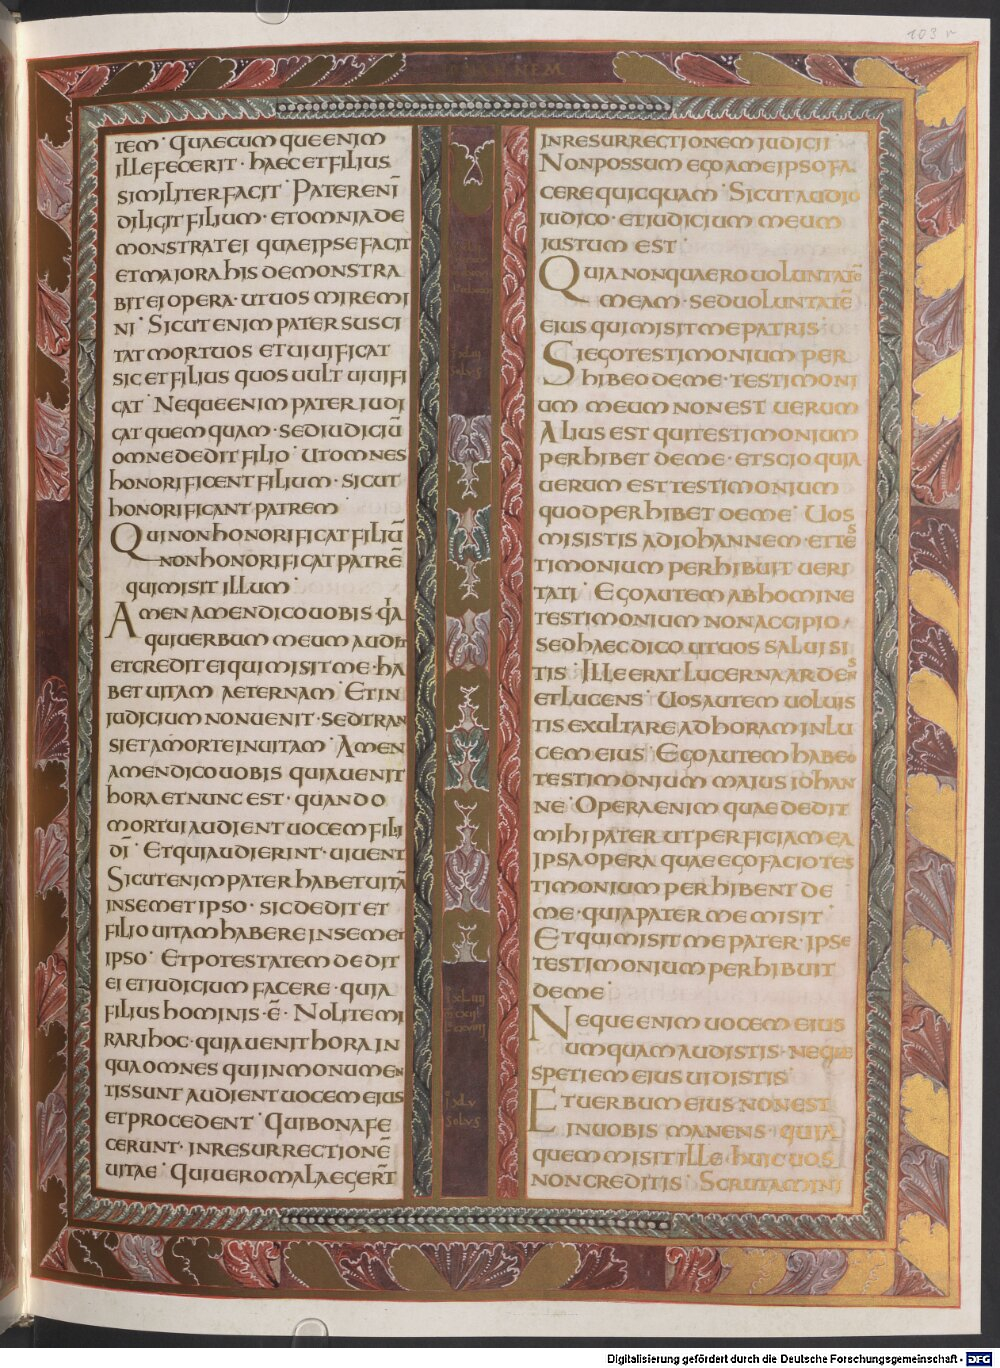 103 r
IOHANNEM
TEM · QUAECUMQUE ENIM
ILLE FECERIT · HAEC ET FILIUS
SIMILITER FACIT · PATER ENĪ
DILIGIT FILIUM · ET OMNIA DE
MONSTRAT EI QUAE IPSE FACIT
ET MAIORA HIS DEMONSTRA
BIT EI OPERA · UT UOS MIREMI
NI · SICUT ENIM PATER SUSCI
TAT MORTUOS ET UIUIFICAT
SIC ET FILIUS QUOS UULT UIUIFI
CAT · NEQUE ENIM PATER IUDI
CAT QUEMQUAM · SED IUDICIŪ
OMNE DEDIT FILIO · UT OMNES
HONORIFICENT FILIUM · SICUT
HONORIFICANT PATREM
QUI NON HONORIFICAT FILIŪ
NON HONORIFICAT PATRĒ
QUI MISIT ILLUM ·
AMEN AMEN DICO UOBIS Q̄A
QUI UERBUM MEUM AUDIT
ET CREDIT EI QUI MISIT ME · HA
BET UITAM AETERNAM · ET IN
IUDICIUM NON UENIT · SED TRAN
SIET A MORTE IN UITAM · AMEN
AMEN DICO UOBIS QUIA UENIT
HORA ET NUNC EST · QUANDO
MORTUI AUDIENT UOCEM FILI
DĪ · ET QUI AUDIERINT · UIUENT
SICUT ENIM PATER HABET UITĀ
IN SEMET IPSO · SIC DEDIT ET
FILIO UITAM HABERE IN SEMET
IPSO · ET POTESTATEM DEDIT
EI ET IUDICIUM FACERE · QUIA
FILIUS HOMINIS · Ē · NOLITE MI
RARI HOC · QUIA UENIT HORA IN
QUA OMNES QUI IN MONUMEN
TIS SUNT AUDIENT UOCEM EIUS
ET PROCEDENT · QUI BONA FE
CERUNT · IN RESURRECTIONĒ
UITAE · QUI UERO MALA EGERT̄
XLII
SOLUS
XLIII
XLV
SOLUS
IN RESURRECTIONEM IUDICII
NON POSSUM EGO A ME IPSO FA
CERE QUICQUAM · SICUT AUDIO
IUDICO · ET IUDICIUM MEUM
IUSTUM EST ·
QUIA NON QUAERO UOLUNTATĒ
MEAM · SED UOLUNTATĒ
EIUS QUI MISIT ME PATRIS ·
SI EGO TESTIMONIUM PER
HIBEO DE ME · TESTIMONI
UM MEUM NON EST UERUM
ALIUS EST QUI TESTIMONIUM
PERHIBET DE ME · ET SCIO QUIA
UERUM EST TESTIMONIUM
QUOD PERHIBET DE ME · UOS
MISISTIS AD IOHANNEM · ET TES
TIMONIUM PERHIBUIT UERI
TATI · EGO AUTEM AB HOMINE
TESTIMONIUM NON ACCIPIO ·
SED HAEC DICO UT UOS SALUI SI
TIS · ILLE ERAT LUCERNA ARDENS
ET LUCENS · UOS AUTEM UOLUIS
TIS EXULTARE AD HORAM IN LU
CEM EIUS · EGO AUTEM HABEO
TESTIMONIUM MAIUS IOHAN
NE · OPERA ENIM QUAE DEDIT
MIHI PATER UT PERFICIAM EA
IPSA OPERA QUAE EGO FACIO TES
TIMONIUM PERHIBENT DE
ME · QUIA PATER ME MISIT ·
ET QUI MISIT ME PATER · IPSE
TESTIMONIUM PERHIBUIT
DE ME ·
NEQUE ENIM UOCEM EIUS
UMQUAM AUDISTIS · NEQUE
SPETIEM EIUS UIDISTIS ·
ET UERBUM EIUS · NON EST
IN UOBIS MANENS · QUIA
QUEM MISIT ILLE · HUIC UOS
NON CREDITIS · SCRUTAMINI
Digitalisierung gefördert durch die Deutsche Forschungsgemeinschaft - DFG